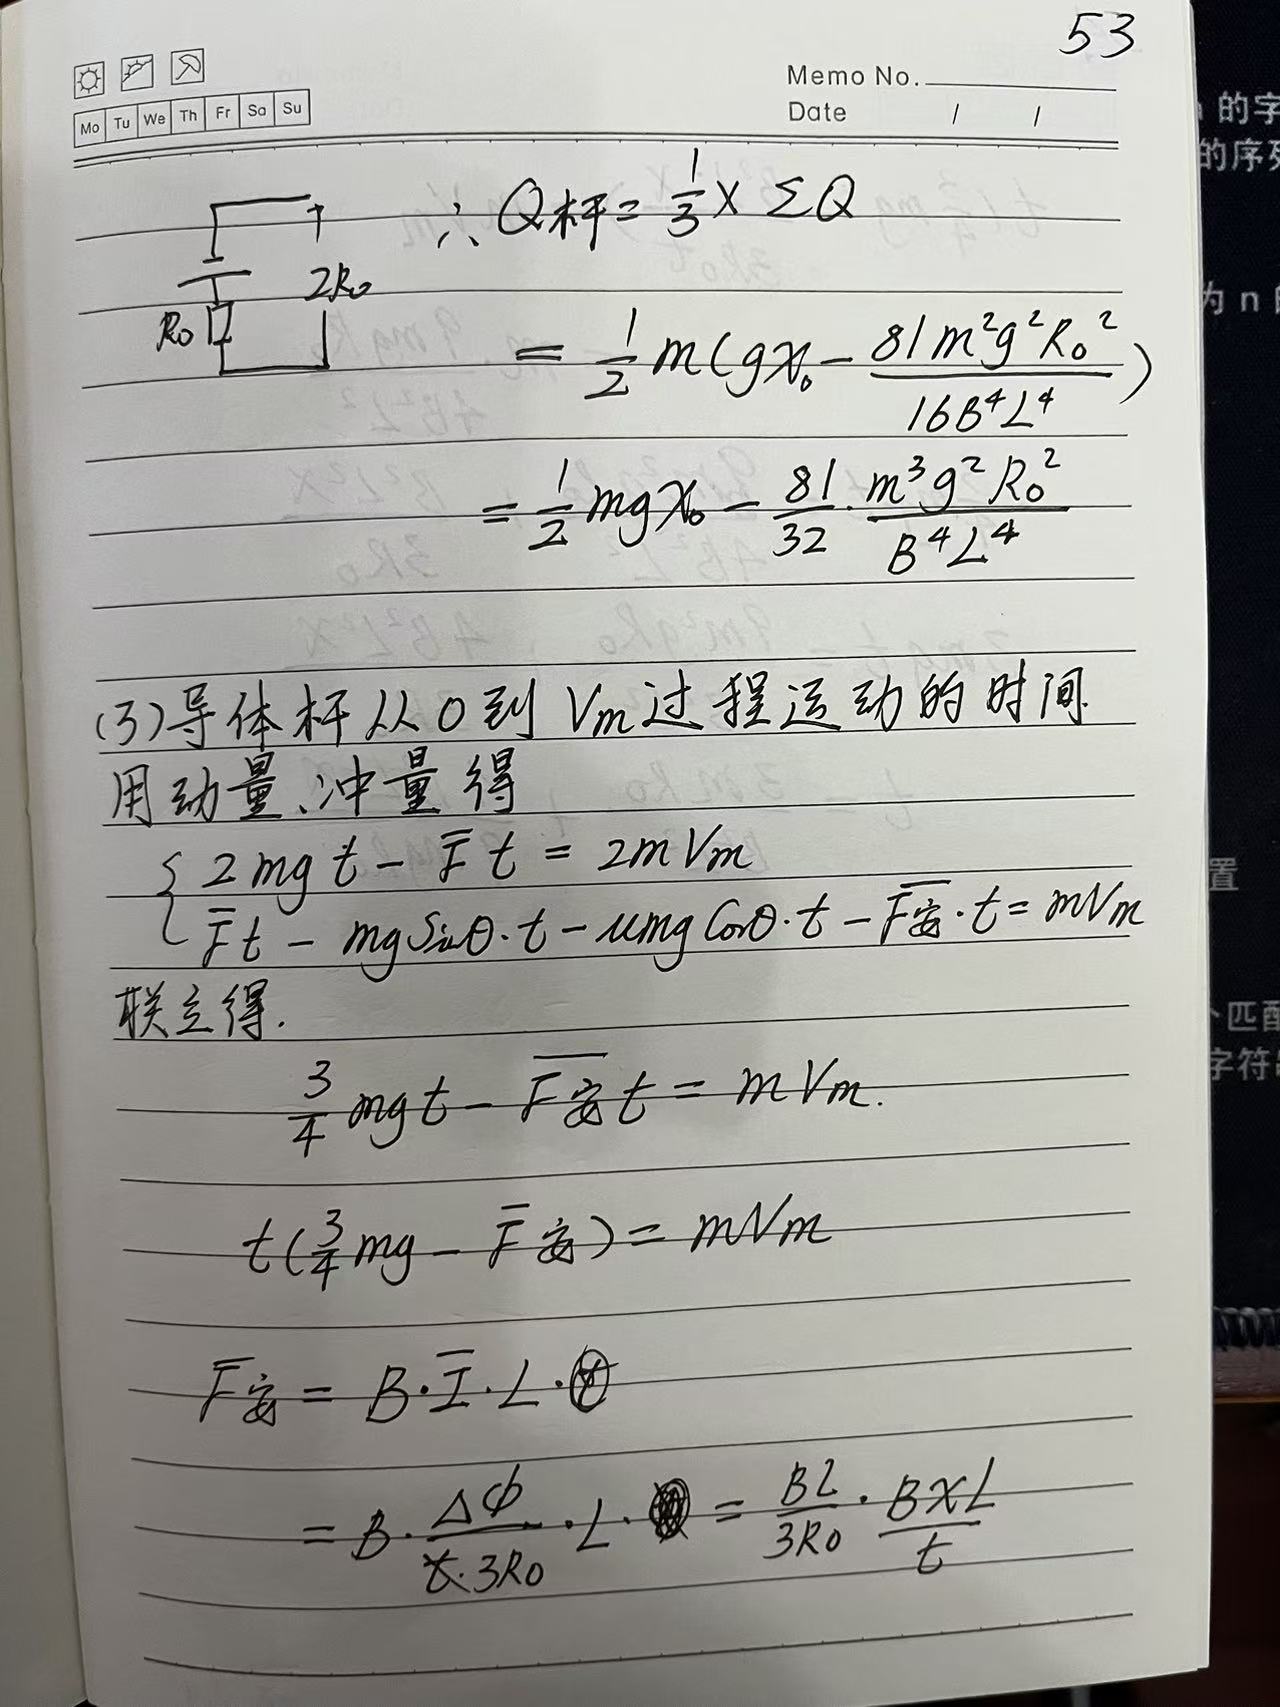 53
Memo No.
Mo Tu We Th Fr Sa Su
Date / /
∴ Q杆 = 1/3 × ΣQ
2R₀
R₀
= 1/2 m(gx₀ - 81m²g²R₀²/16B⁴L⁴)
= 1/2 mgx₀ - 81/32 · m³g²R₀²/B⁴L⁴
(3)导体杆从0到Vm过程运动的时间
用动量、冲量得
{ 2mgt - F̄t = 2mVm
F̄t - mgSinθ·t - umgCosθ·t - F̄安·t = mVm
联立得.
3/4 mgt - F̄安t = mVm.
t(3/4 mg - F̄安) = mVm
F̄安 = B·Ī·L·
= B·ΔΦ/t·3R₀·L· = BL/3R₀ · BXL/t
的字
的序列
为 n 的
置
个匹配
字符串